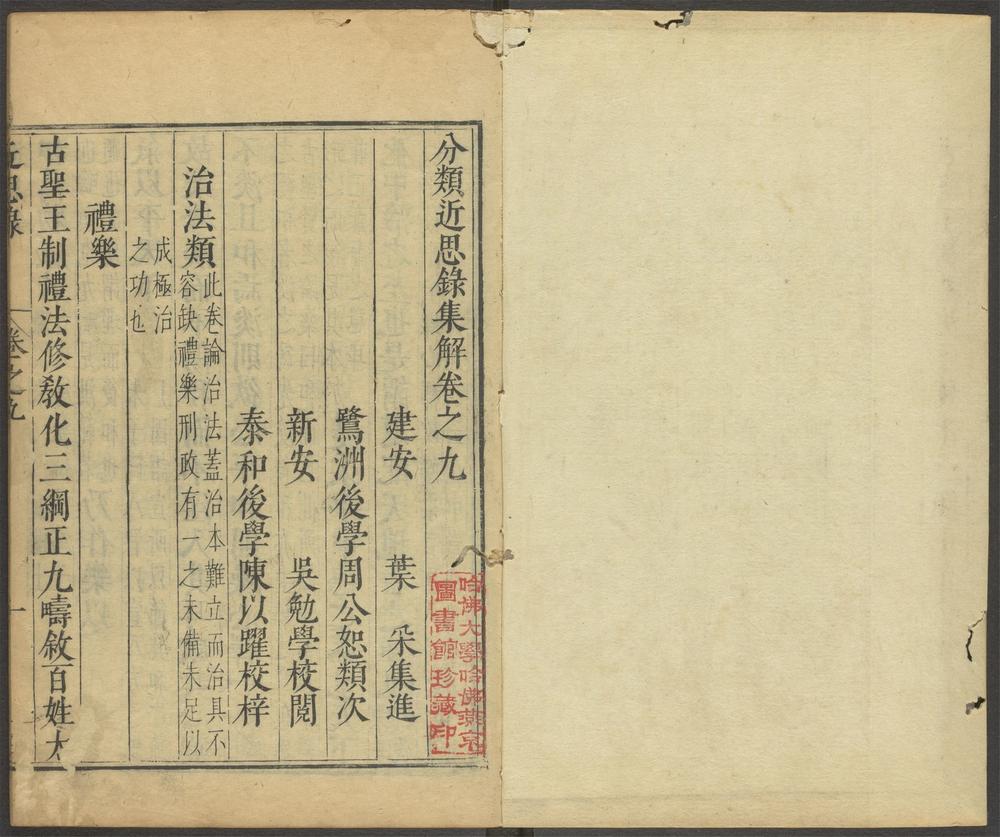 分類近思錄集解卷之九
建安 葉 采集進
鷺洲後學周公恕類次
新安 吳勉學校閱
泰和後學陳以躍校梓
治法類
此卷論治法蓋治本難立而治具不
容缺禮樂刑政有一之未備未足以
成極治
之功也
禮樂
古聖王制禮法修敎化三綱正九疇敘百姓大
近思錄 卷之九 一
哈佛大學哈佛燕京
圖書館珍藏印